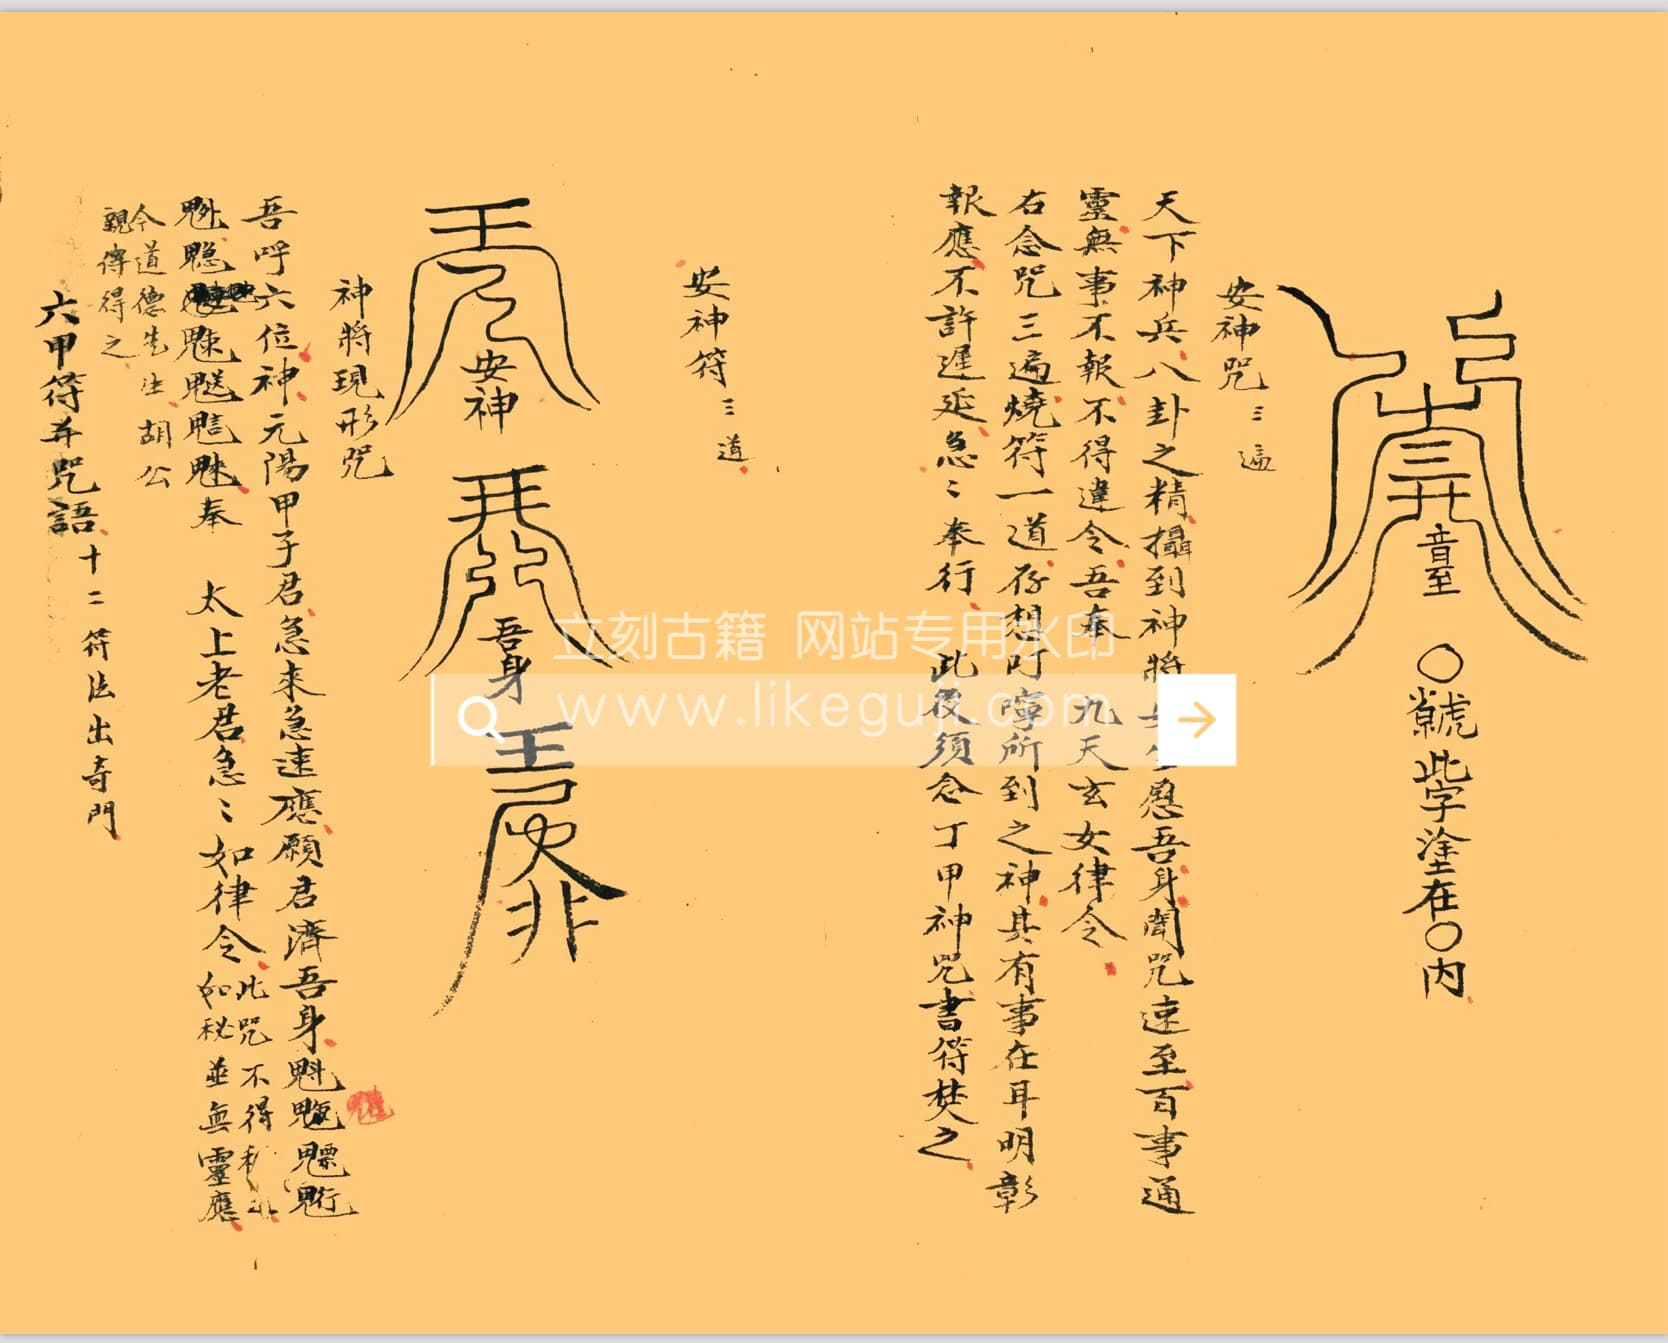 音至
〇
號此字塗在〇内
安神咒三遍
天下神兵八卦之精攝到神將
愿吾身聞咒速至百事通
靈無事不報不得違令吾奉
九天玄女律令
右念咒三遍燒符一道存想叮嚀所到之神其有事在耳明彰
報應不許遲延急〻奉行
此後須念丁甲神咒書符焚之
安神符三道
安神
吾身
神將現形咒
吾呼六位神元陽甲子君急來急速應願君濟吾身魁
奉
太上老君急〻如律令
此咒不得
如秘並無靈應
今道德先生胡公
親傳得之
六甲符并咒語
十二符法出奇門
立刻古籍 网站专用水印
www.likeguji.com